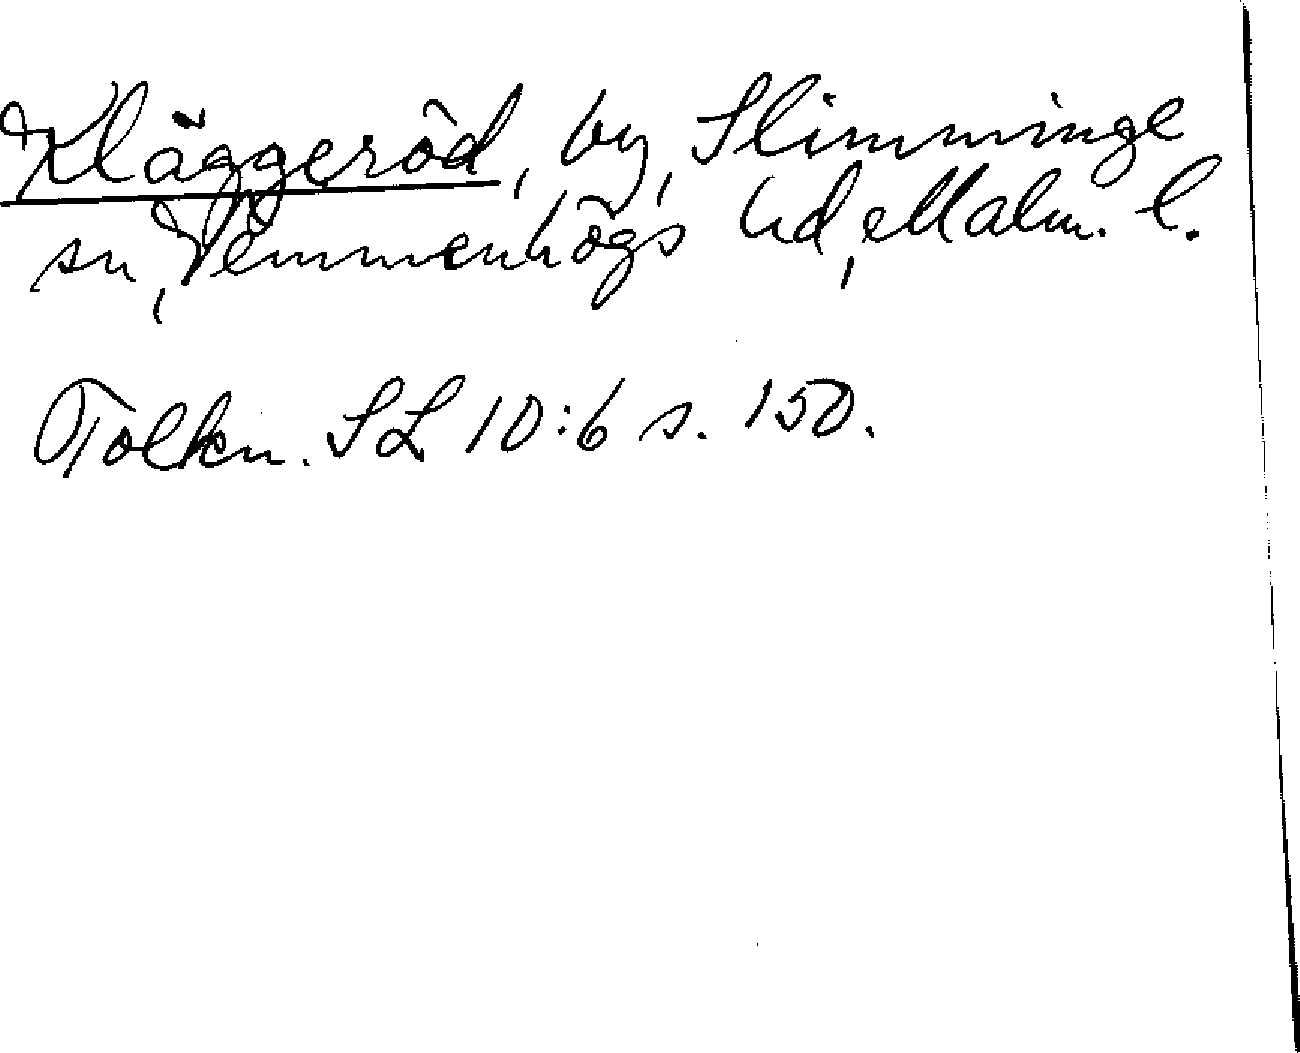 Kläggeröd, by, Slimminge
sn, Vemmenhögs hd, Malm. l.
Tolkn. SL 10:6 s. 150.